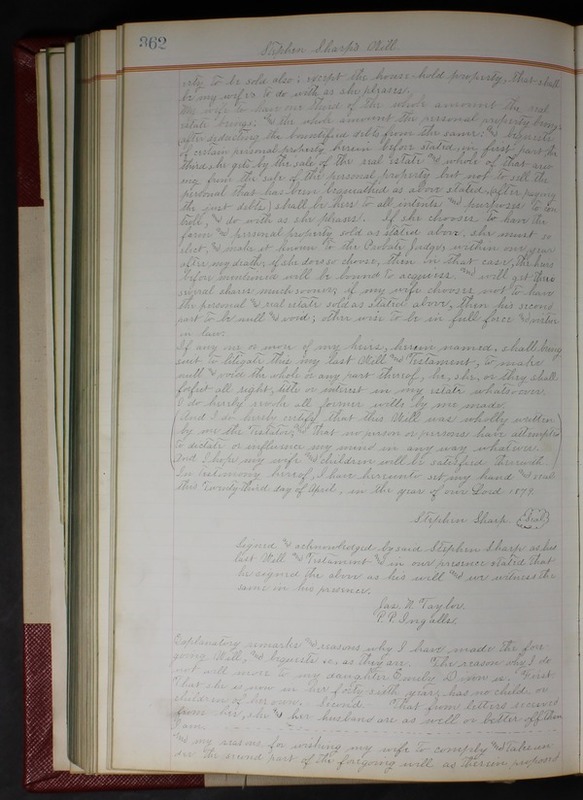 362
Stephen Sharp's Will.
erty to be sold also: except the house hold property, that shall
be my wife's to do with as she pleases.
My wife to have one third of the whole amount the real
estate brings; and the whole amount the personal property brings,
after deducting the bonified debts from the same; and bequests
of certain personal property herein before stated, in first part for
third, she gets by the sale of the real estate and whole of that aris
ing from the sale of the personal property but not to sell the
personal that has been bequeathed as above stated, after paying
the just debts, shall be hers to all intents and purposes to con
troll, and do with as she pleases. If she chooses to have the
farm and personal property sold as stated above, she must so
elect, and make it known to the Probate Judge, within one year
after my death, if she does so choose, then in that case, the heirs
before mentioned will be bound to acquiesce, and will get their
several shares much sooner; if my wife chooses not to have
the personal and real estate sold as stated above, then his second
part to be null and void; other wise to be in full force and virtue
in law.
If any one or more of my heirs, herein named, shall bring
suit to litigate this my last Will and Testament, to make
null and void the whole or any part thereof, he, she, or they shall
forfeit all right, title or interest in my estate whatsoever.
I do hereby revoke all former wills by me made.
(And I do hereby certify that this Will was wholly written
by me the Testator, and that no person or persons have attempted
to dictate or influence my mind in any way whatever.
And I hope my wife and children will be satisfied therewith.)
In Testimony hereof, I have hereunto set my hand and seal
this Twenty third day of April, in the year of our Lord 1879.
Stephen Sharp (Seal)
Signed and acknowledged by said Stephen Sharp as his
last Will and Testament and in our presence stated that
he signed the above as his will and we witness the
same in his presence.
Jas. N. Taylor.
P. P. Ingalls.
Explanatory remarks and reasons why I have made the fore
going Will, and bequests &c, as they are. The reason why I do
not will more to my daughter Emily is. First.
That she is now in her forty sixth year, has no child, or
children of her own. Second. That from letters received
from her, she and her husband are as well or better off than
I am.
and my reasons for wishing my wife to comply and take as
in the second part of the foregoing will as therein proposed